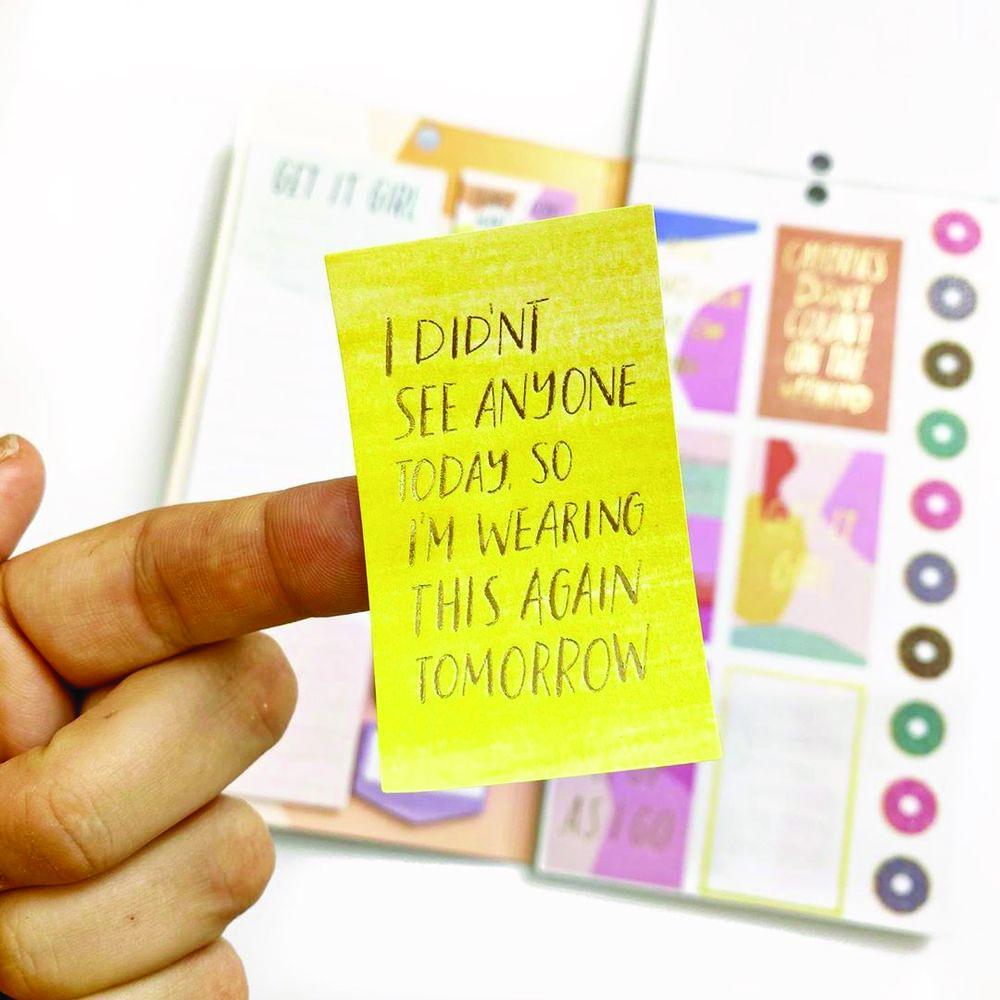 GET IT GIRL
I DID'NT
SEE ANYONE
TODAY, SO
I'M WEARING
THIS AGAIN
TOMORROW
CALORIES
DON'T
COUNT
ON THE
WEEKEND
AS I GO